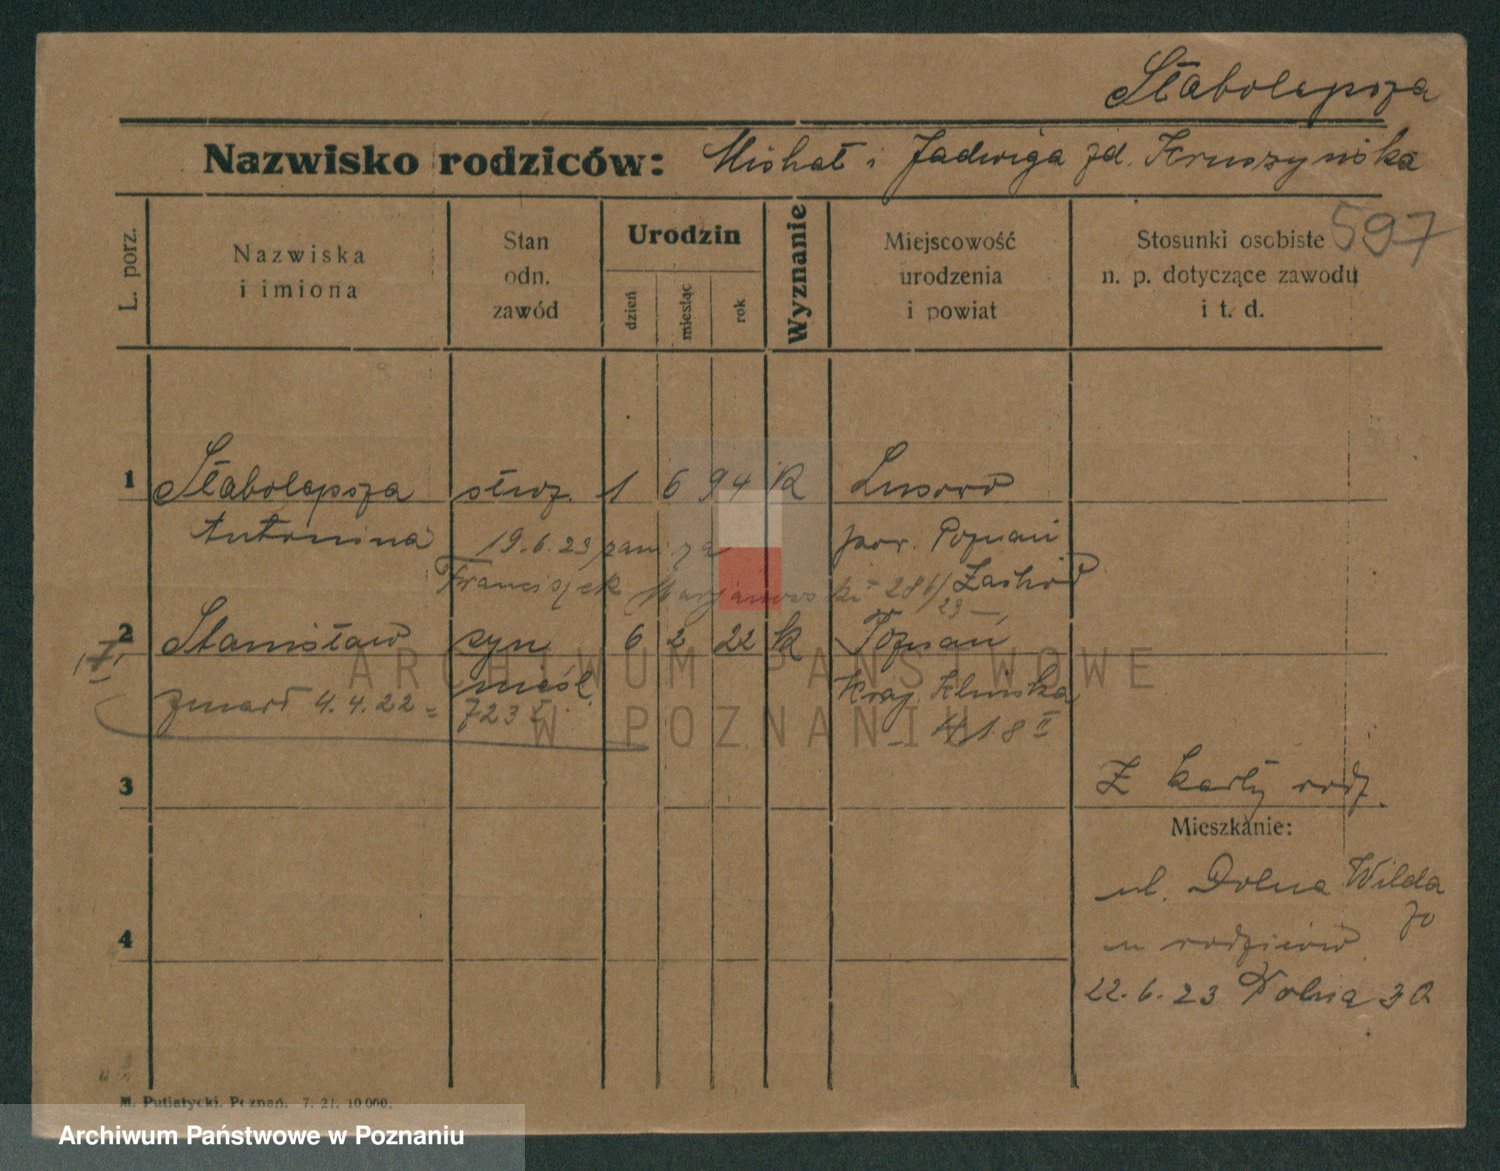 Słabolepsza
Nazwisko rodziców: Michał i Jadwiga zd. Kruszyńska
597
L. porz.
Nazwiska i imiona
Stan odn. zawód
Urodzin
dzień
miesiąc
rok
Wyznanie
Miejscowość urodzenia i powiat
Stosunki osobiste n. p. dotyczące zawodu i t. d.
1 Słabolepsza służ. 1 6 94 k Lusowo
Antonina 19.6.23 zam. za pow. Poznań
Franciszek Marjanowski 286/23 Zachód
2 Stanisław syn 6 2 22 k Poznań
zmarł 4.4.22 = 723 nieśl. Kraj. Klinika
418 II
3
Z karty rodz.
Mieszkanie:
ul. Dolna Wilda 70
4
u rodziców
22.6.23 Polna 30
M. Putiatycki, Poznań. 7. 21. 10 000.
ARCHIWUM PAŃSTWOWE
W POZNANIU
Archiwum Państwowe w Poznaniu